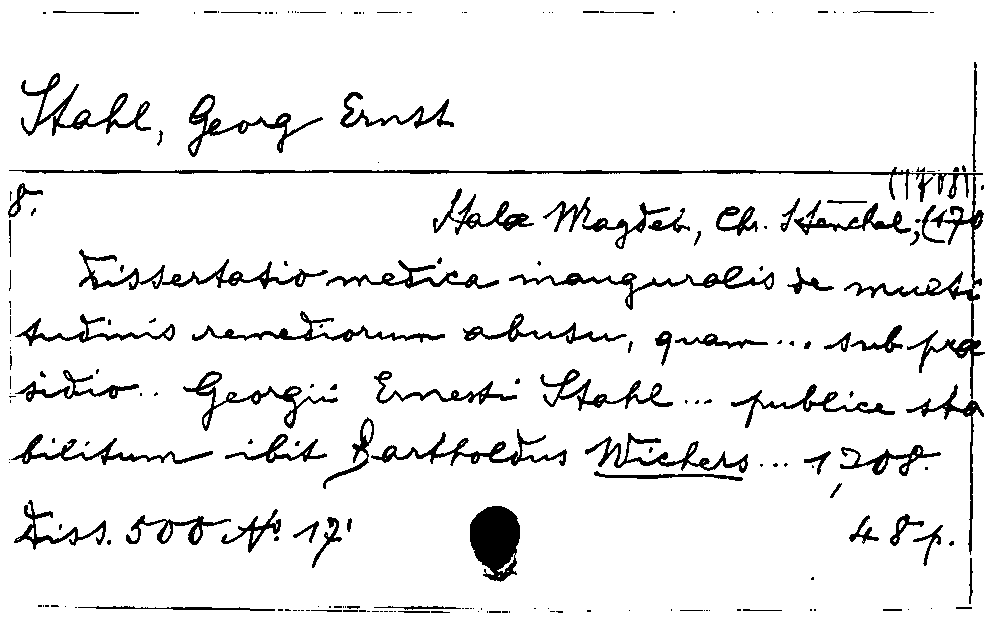 Stahl, Georg Ernst
(1708).
8.
Halæ Magdeb., Chr. Henckel; (170
Dissertatio medica inauguralis de multi
tudinis remediorum abusu, quam ... sub præ
sidio .. Georgii Ernesti Stahl ... publice sta
bilitum ibit Bartholdus Wichers ... 1708.
Diss. 500 No. 17.
48 p.